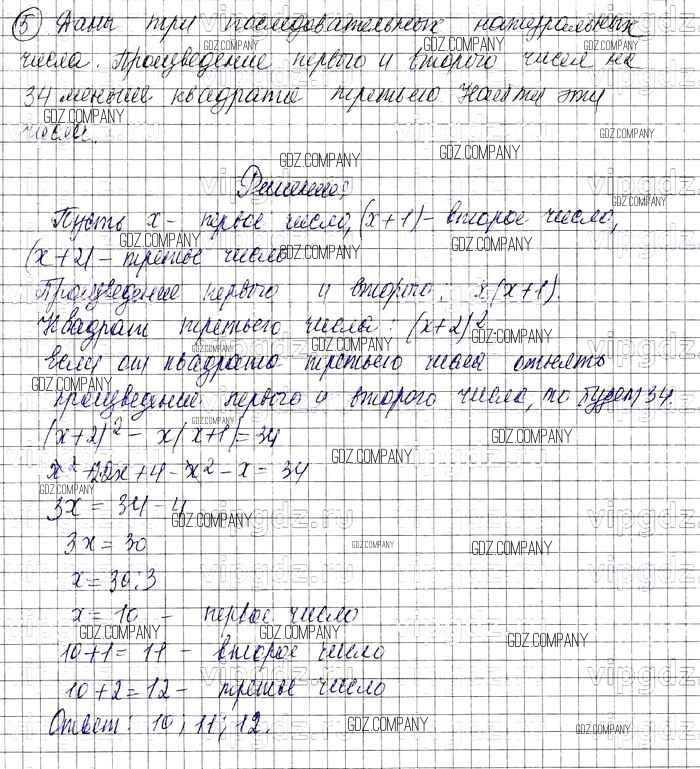 5 Даны три последовательных натуральных
числа. Произведение первого и второго чисел на
34 меньше квадрата третьего Найти эти
числа.
Решение:
Пусть x - первое число, (x+1) - второе число,
(x+2) - третье число
Произведение первого и второго: x(x+1).
Квадрат третьего числа: (x+2)²
Если от квадрата третьего числа отнять
произведение первого и второго числа, то будет 34.
(x+2)² - x(x+1) = 34
x² + 2·2x + 4 - x² - x = 34
3x = 34 - 4
3x = 30
x = 30 : 3
x = 10 - первое число
10 + 1 = 11 - второе число
10 + 2 = 12 - третье число
Ответ: 10; 11; 12.
GDZ.COMPANY
vipgdz.ru